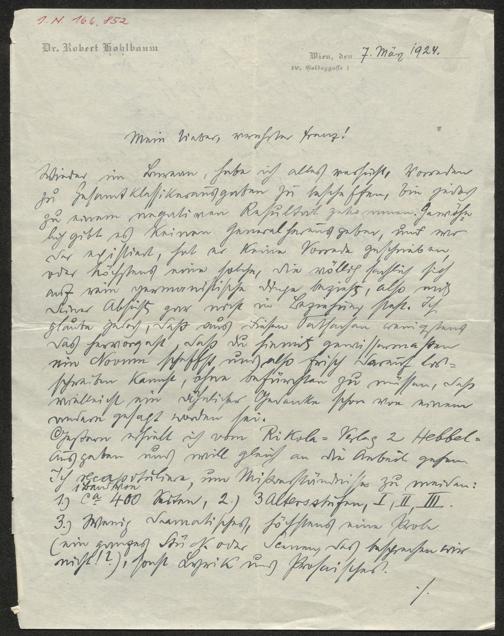 I. N. 166.852
Dr. Robert Hohlbaum
Wien, den 7. März 1924.
Mein lieber, verehrter Franz!
Wieder im Bureau, habe ich alles versucht, Vorreden
zu Gesamtklassikerausgaben zu beschaffen, bin jedoch
zu einem negativen Resultat gekommen. Gewöhn-
lich gibt es keinen Generalherausgeber, und wo
der existiert, hat er keine Vorrede geschrieben
oder höchstens eine solche, die völlig sachlich sich
auf rein germanistische Dinge bezieht, also mit
Deiner Absicht gar nicht in Beziehung steht. Ich
glaube jedoch, daß aus diesen Tatsachen wenigstens
das hervorgeht, daß Du hiemit gewissermaßen
ein Novum schaffst und also frisch darauf los-
schreiben kannst, ohne befürchten zu müssen, daß
vielleicht ein ähnlicher Gedanke schon von einem
andern gesagt worden sei.
Gestern erhielt ich vom Rikola-Verlag 2 Hebbel-
Ausgaben und will gleich an die Arbeit gehen.
Ich recapituliere, um Mißverständnisse zu meiden:
1) ca 400 Seiten, 2.) 3 Altersstufen, I, II, III.
3.) Wenig Dramatisches, höchstens eine Probe
(ein ganzes Stück oder Scenen, das besprechen wir
noch!?), sonst Lyrik und Prosaisches.
./.